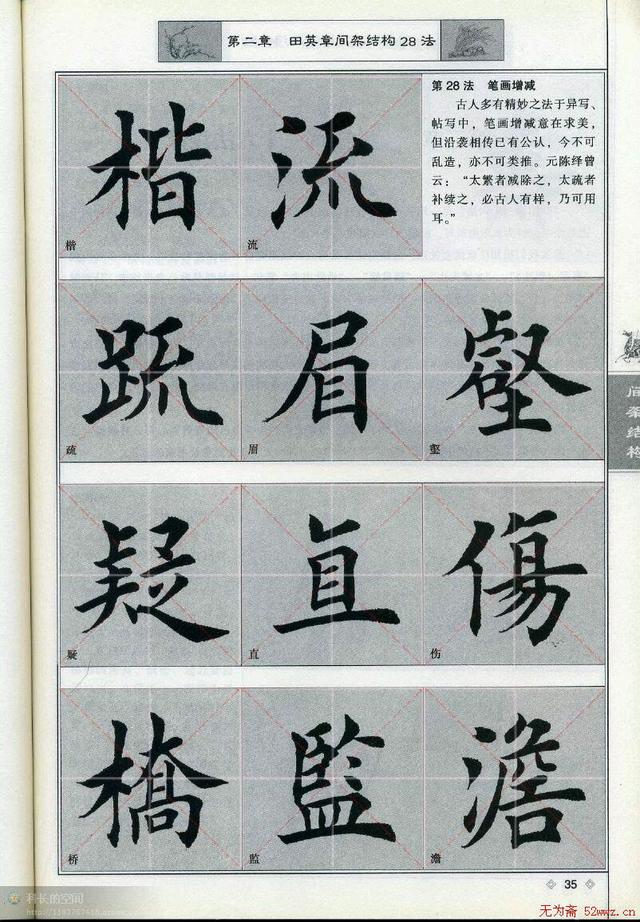 第二章 田英章间架结构28法
第28法 笔画增减
古人多有精妙之法于异写、
帖写中，笔画增减意在求美，
但沿袭相传已有公认，今不可
乱造，亦不可类推。元陈绎曾
云：“太繁者减除之，太疏者
补续之，必古人有样，乃可用
耳。”
楷 流
楷 流
疏 眉 壑
疏 眉 壑
疑 直 傷
疑 直 伤
橋 監 澹
桥 监 澹
间架结构
35
科长的空间
无为斋 52wwz.cn